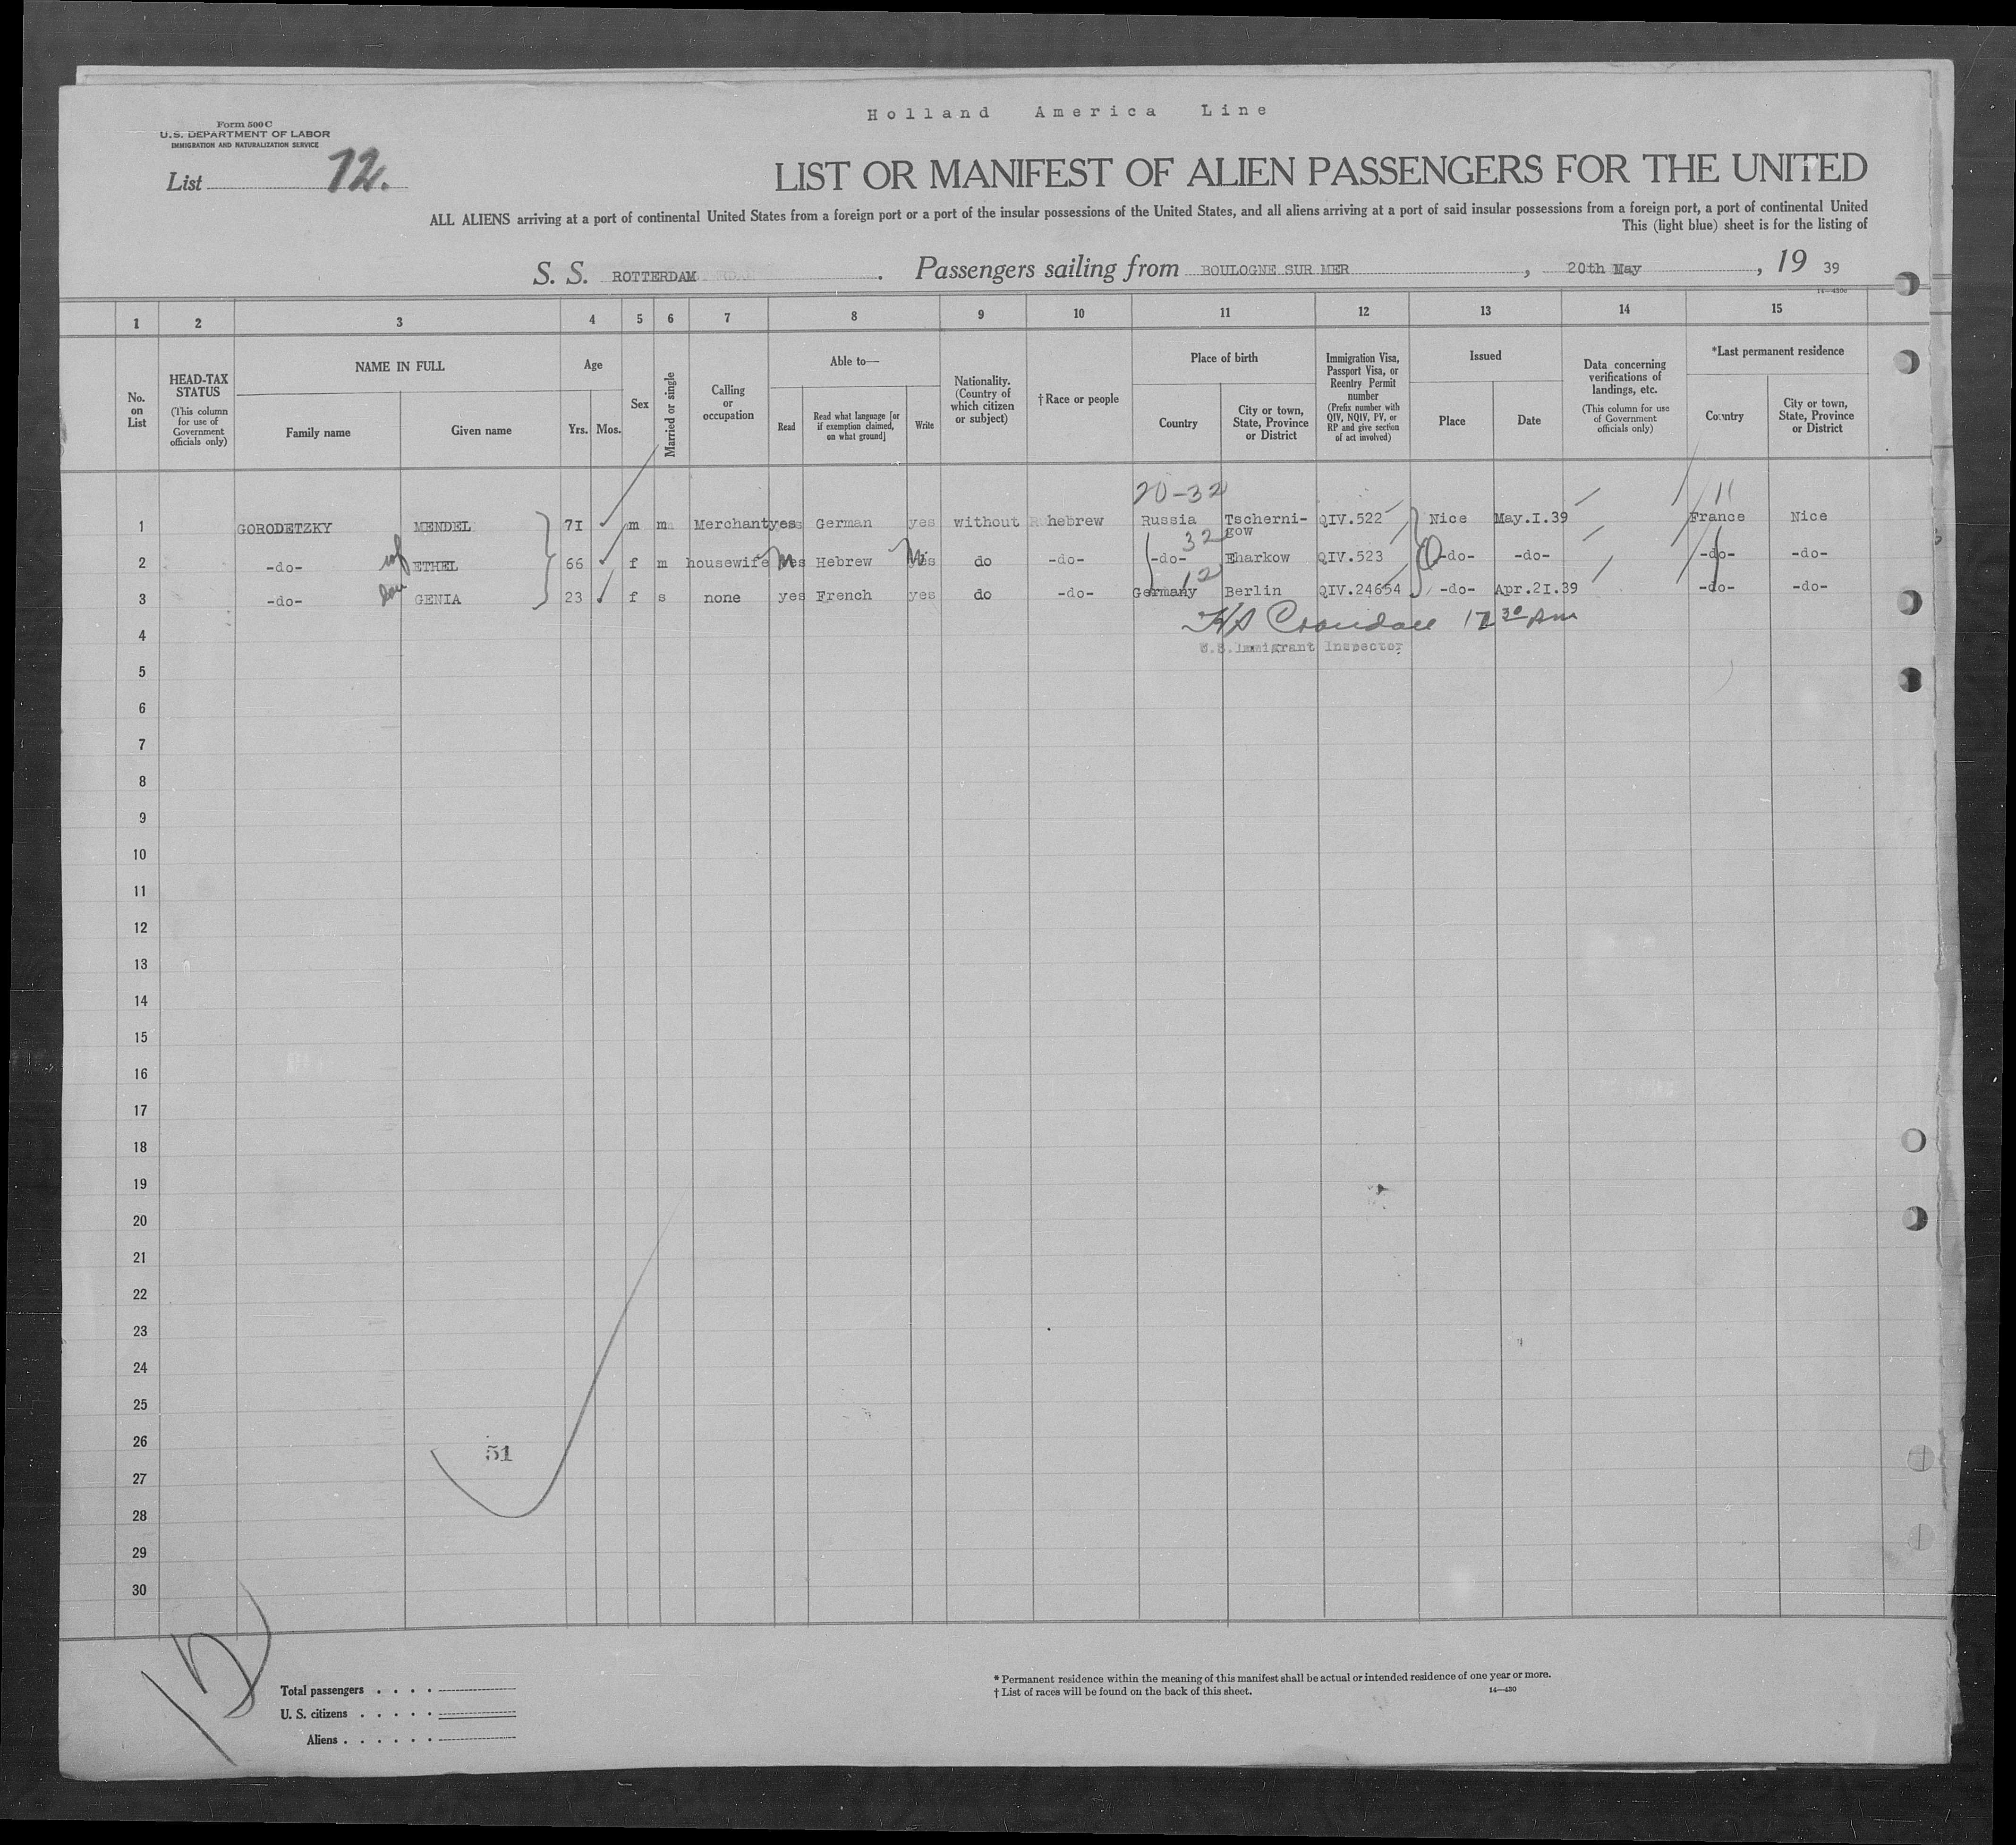 Holland America Line
Form 500 C
U.S. DEPARTMENT OF LABOR
IMMIGRATION AND NATURALIZATION SERVICE
List 12.
LIST OR MANIFEST OF ALIEN PASSENGERS FOR THE UNITED
ALL ALIENS arriving at a port of continental United States from a foreign port or a port of the insular possessions of the United States, and all aliens arriving at a port of said insular possessions from a foreign port, a port of continental United
This (light blue) sheet is for the listing of
S. S. ROTTERDAM . Passengers sailing from BOULOGNE SUR MER , 20th May , 19 39
1 2 3 4 5 6 7 8 9 10 11 12 13 14 15
No. on List
HEAD-TAX STATUS (This column for use of Government officials only)
NAME IN FULL
Family name
Given name
Age
Yrs. Mos.
Sex
Married or single
Calling or occupation
Able to—
Read
Read what language [or if exemption claimed, on what ground]
Write
Nationality. (Country of which citizen or subject)
†Race or people
Place of birth
Country
City or town, State, Province or District
Immigration Visa, Passport Visa, or Reentry Permit number (Prefix number with QIV, NQIV, PV, or RP and give section of act involved)
Issued
Place
Date
Data concerning verifications of landings, etc. (This column for use of Government officials only)
*Last permanent residence
Country
City or town, State, Province or District
20-32 11
1 GORODETZKY MENDEL 7I m m Merchant yes German yes without hebrew Russia Tscherni-gow QIV.522 Nice May.I.39 France Nice
32
2 -do- wf ETHEL 66 f m housewife yes Hebrew yes do -do- -do- Eharkow QIV.523 -do- -do- -do- -do-
12
3 -do- dau GENIA 23 f s none yes French yes do -do- Germany Berlin QIV.24654 -do- Apr.2I.39 -do- -do-
4
U.S. Immigrant Inspector
5
6
7
8
9
10
11
12
13
14
15
16
17
18
19
20
21
22
23
24
25
26
51
27
28
29
30
Total passengers . . . .
U. S. citizens . . . . .
Aliens . . . . . .
* Permanent residence within the meaning of this manifest shall be actual or intended residence of one year or more.
† List of races will be found on the back of this sheet.
14—430